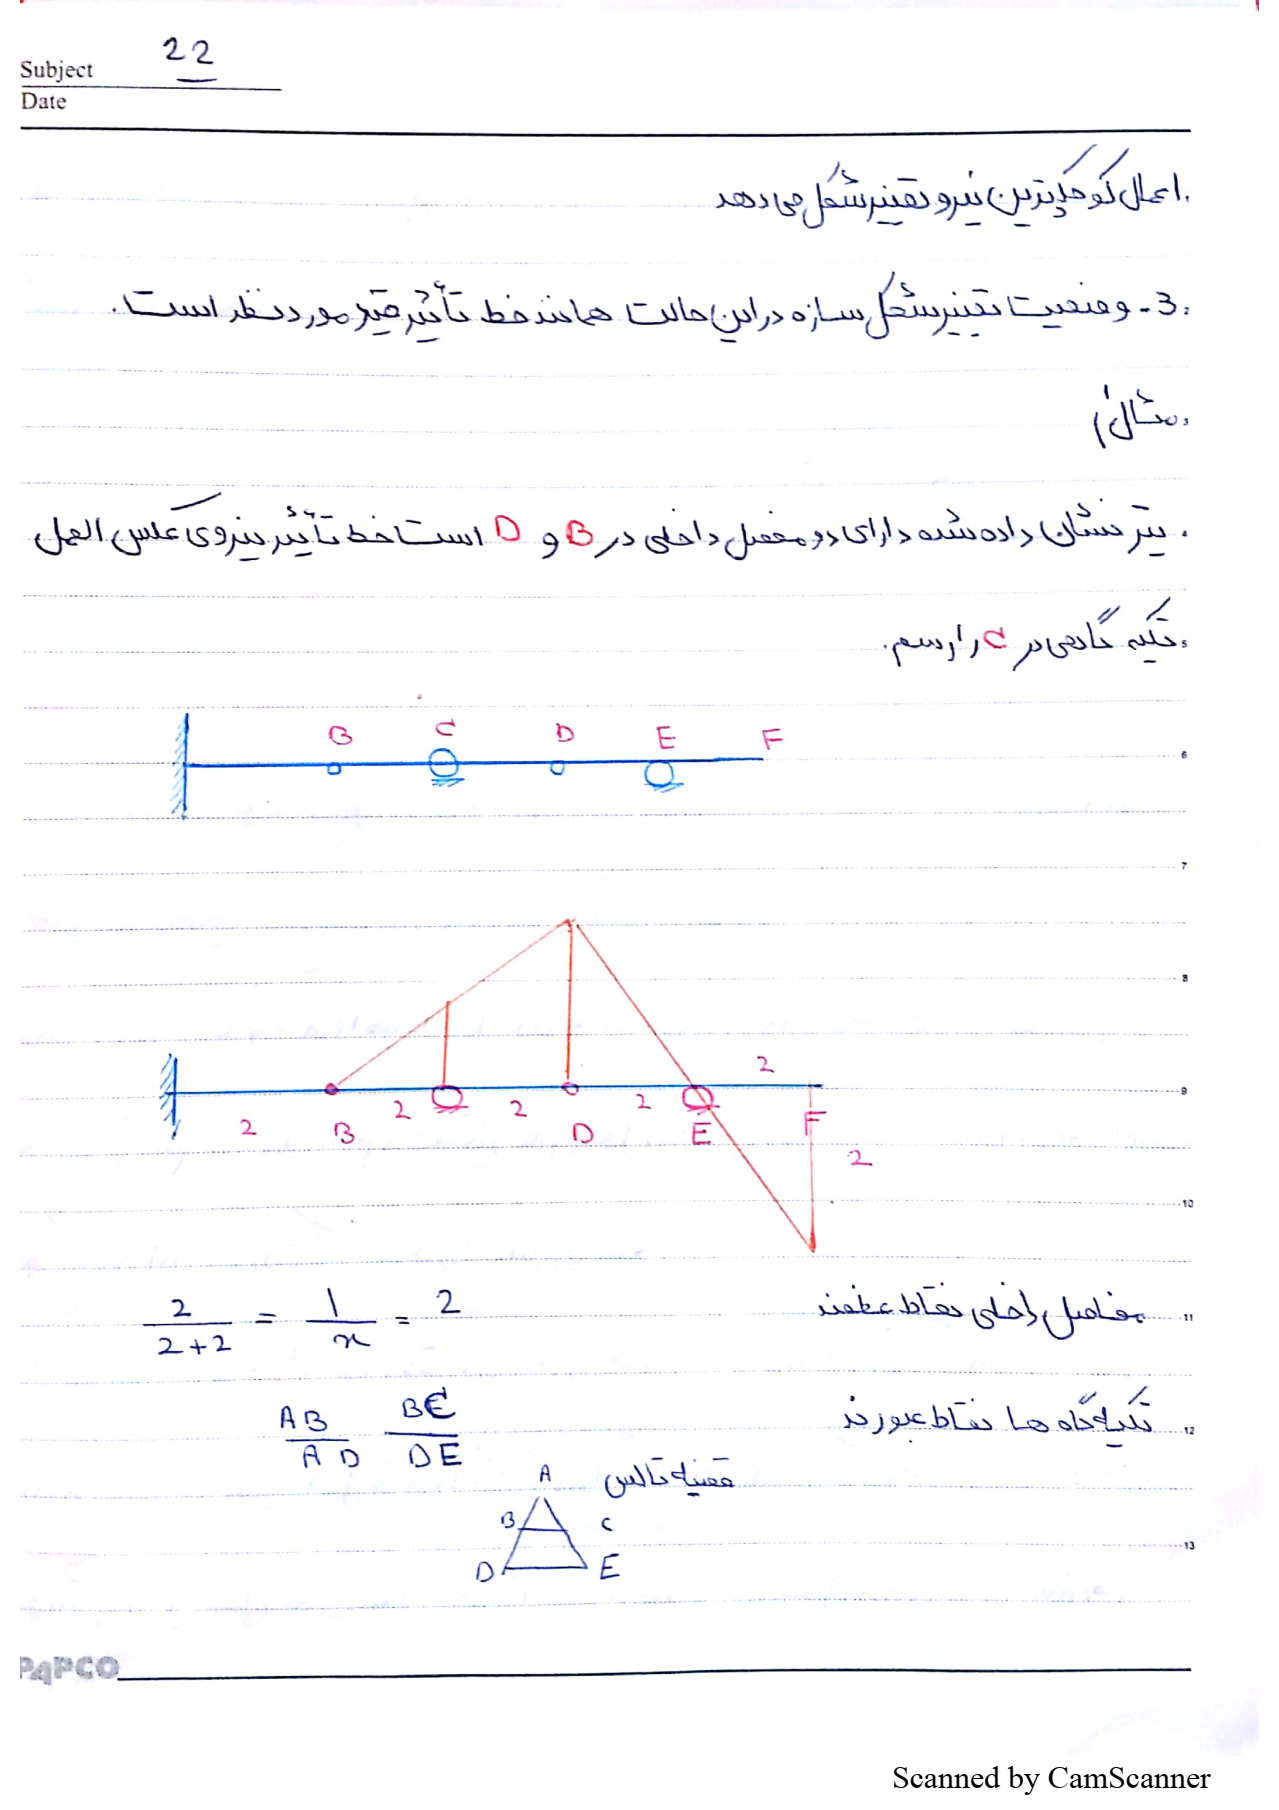 Subject 22
Date
اعمال کوچکترین نیرو تغییر شکل می دهد
3- وضعیت تغییر شکل سازه در این حالت همانند خط تأثیر قید مورد نظر است.
مثال 1)
تیر نشان داده شده دارای دو مفصل داخلی در B و D است خط تأثیر نیروی عکس العمل
تکیه گاهی در C را رسم.
B C D E F
6
7
8
2
9
2 B 2 2 D 2 E F
2
10
2/(2+2) = 1/x = 2
مفاصل داخلی نقاط عطفند
11
AB/AD BC/DE
تکیه گاه ها نقاط عبورند
12
A قضیه تالس
B C
D E
13
PAPCO
Scanned by CamScanner